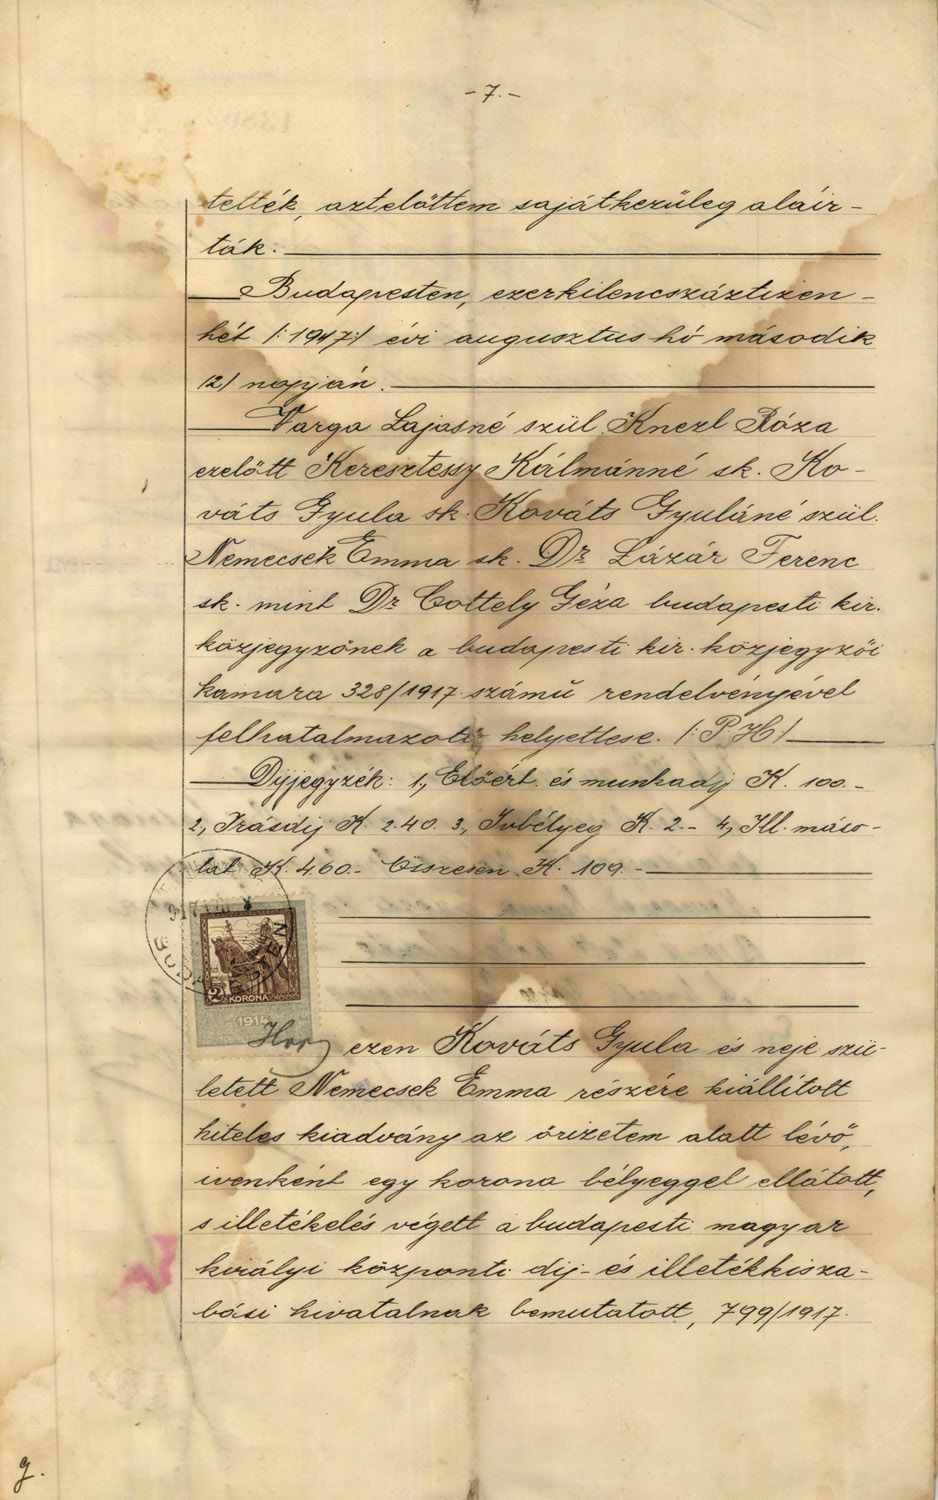 - 7. -
tették, aztelőttem sajátkezűleg aláir-
ták.
Budapesten, ezerkilencszáztizen-
hét /:1917:/ évi augusztus hó második
/2/ napján.
Varga Lajosné szül. Knezl Róza
ezelőtt Keresztessy Kálmánné sk. Ko-
váts Gyula sk. Kováts Gyuláné szül.
Nemecsek Emma sk. Dr. Lázár Ferenc
sk. mint Dr. Cottely Géza budapesti kir.
közjegyzőnek a budapesti kir. közjegyzői
kamara 328/1917 számú rendelvényével
felhatalmazott helyettese. /:P.H:/
Dijjegyzék: 1., Előért. és munkadij K. 100.-
2, Irásdij K. 2.40. 3., Ivbélyeg K. 2.- 4, Ill. máso-
lat K. 4.60.- Összesen K. 109.-
BUDAPESTEN
2 KORONA
1914
Hogy ezen Kováts Gyula és neje szü-
letett Nemecsek Emma részére kiállított
hiteles kiadvány az őrizetem alatt lévő,
ivenként egy korona bélyeggel ellátott,
s illetékelés végett a budapesti magyar
királyi központi dij- és illetékkisza-
bási hivatalnak bemutatott, 799/1917.
g.